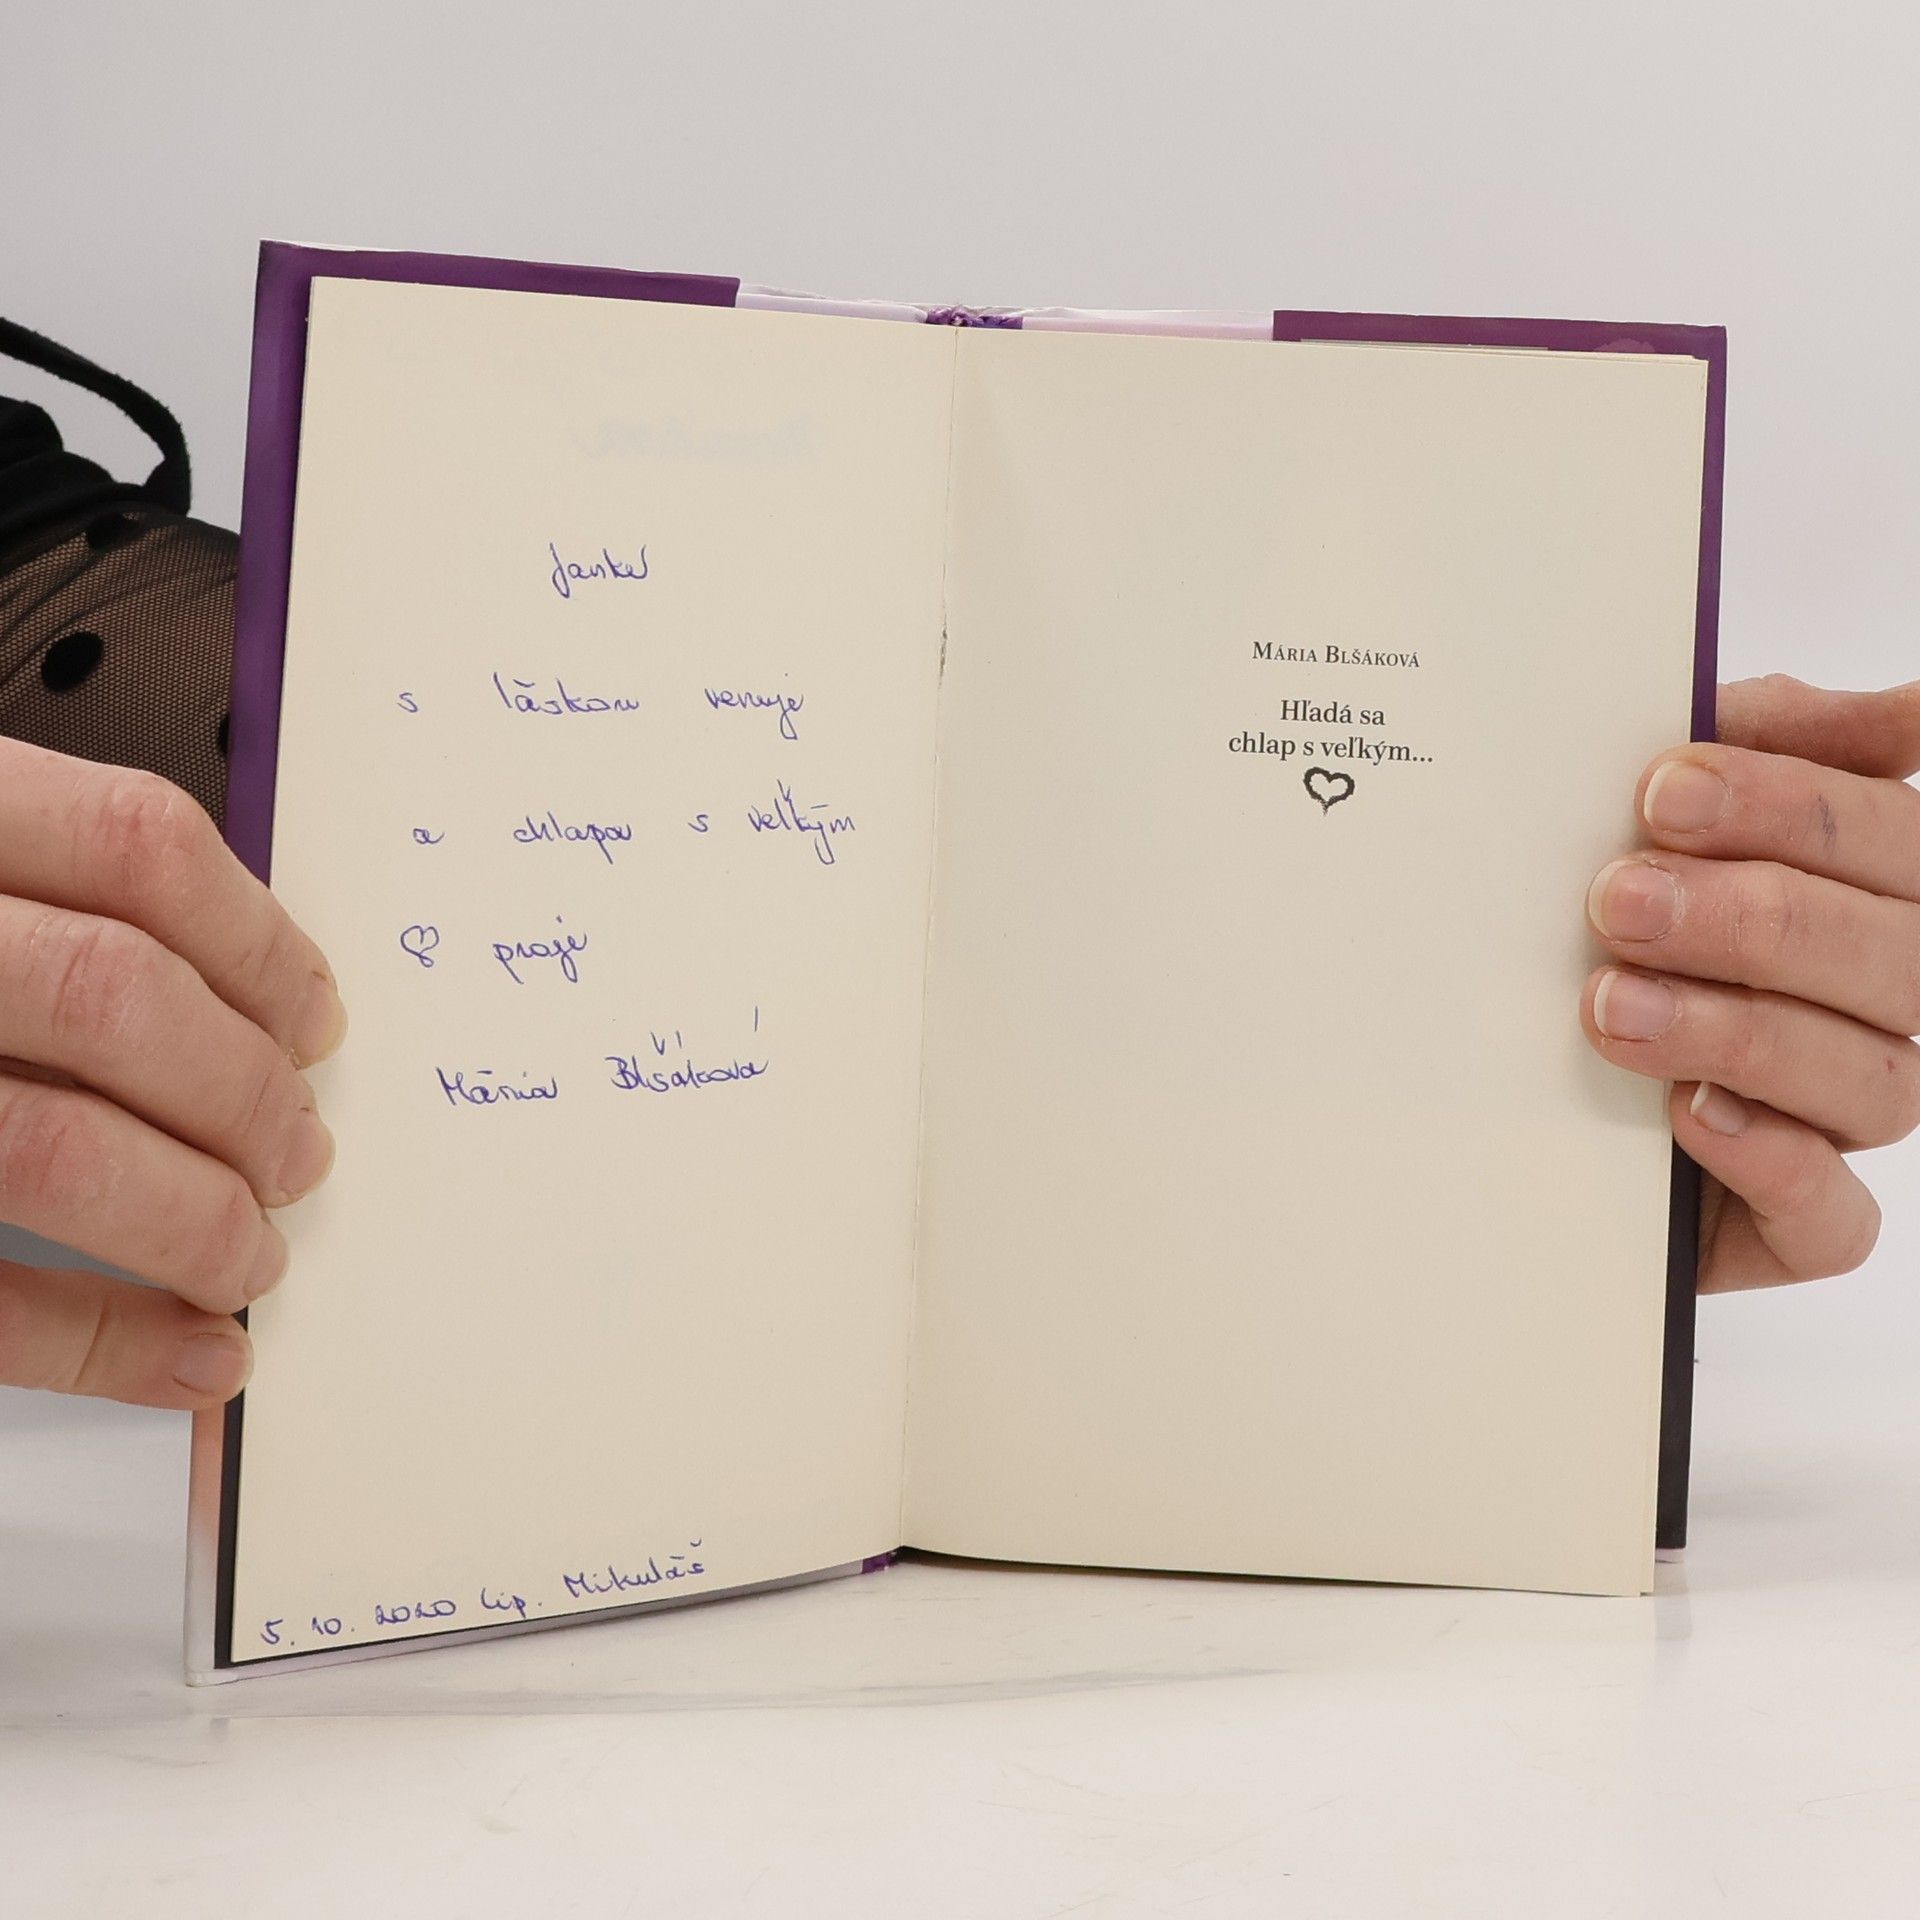 Janke
s láskou venuje
a chlapa s veľkým
♡ praje
Mária Blšáková
5. 10. 2020 Lip. Mikuláš
MÁRIA BLŠÁKOVÁ
Hľadá sa
chlap s veľkým...